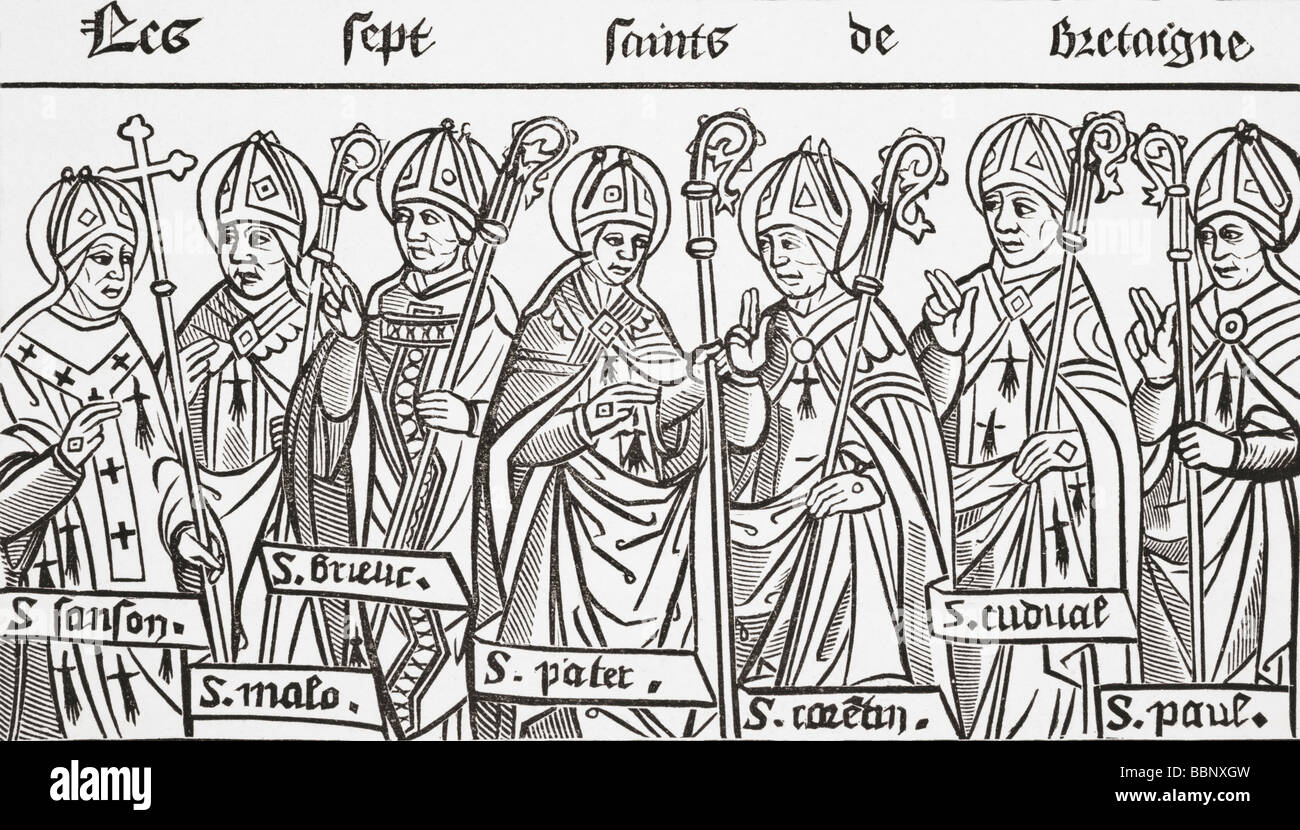 Les sept saints de Bretaigne
S sanson.
S. malo.
S. brieuc.
S. pater.
S. corẽtin.
S. tudual
S. paul.
alamy
Image ID: BBNXGW
www.alamy.com